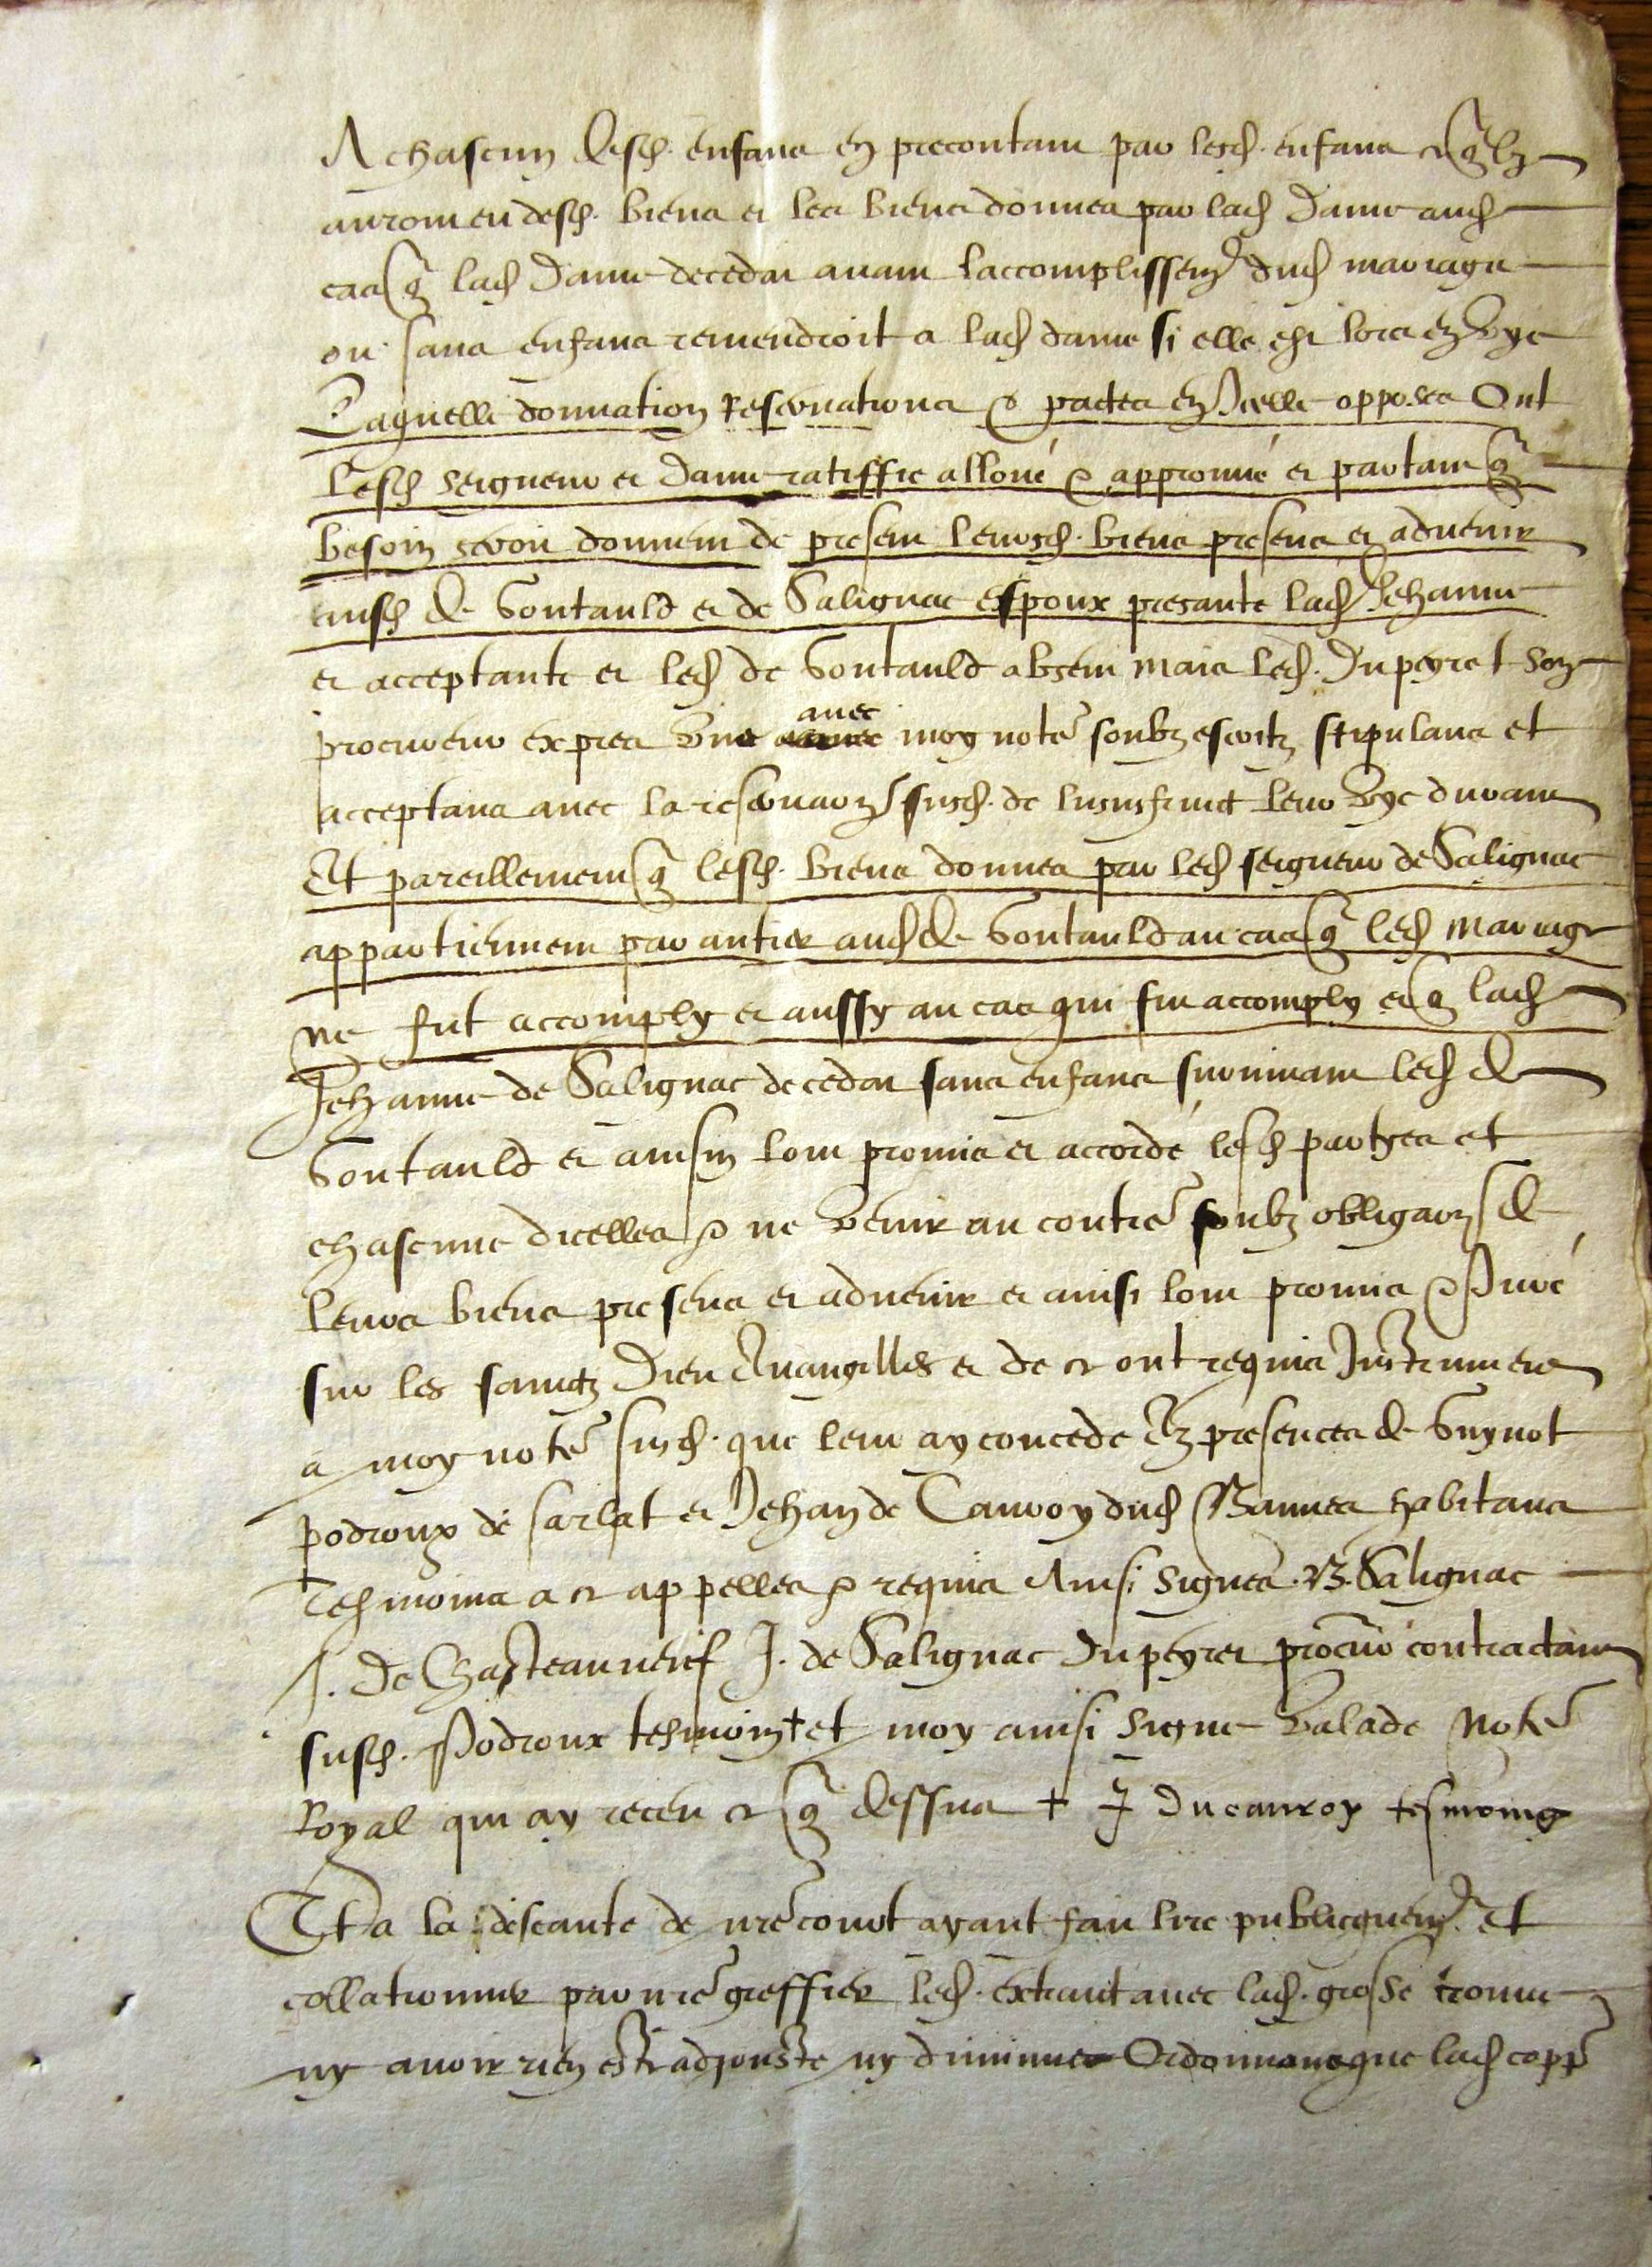 A chascun desd. enfans en precontant par lesd. enfans ce qlz
auront eu desd. biens et les biens donnes par lad dame aud
cas q lad dame decedat avant laccomplissemt dud mariage
ou sans enfans reviendroit a lad dame si elle est lors en vye
Laquelle donnation reservations & pactes en Icelle opposes Ont
Lesd seigneur et dame ratiffié alloué & approuué et partant q
besoin seroit donnent de present leursd. biens presens et aduenir
ausd de Gontauld et de Salignac espoux presante lad Jehanne
et acceptante et led de Gontauld absent mais led. Dupeyret son
procureur expres avec moy notre soubz escritz stipulans et
acceptans auec la reservaon susd. de lusufruict leur vye durant
Et pareillement q lesd. biens donnes par led seigneur de Salignac
appartiennent par antier aud de Gontauld au cas q led mariage
ne fut accomply et aussy au cas qui fut accomply et q lad
Jehanne de Salignac decedat sans enfans survivant led de
Gontauld et ainsin lont promis et accordé lesd partyes et
chascune dicelles & ne venir au contre soubz obligaon de
leurs biens presens et aduenir et ainsi lont promis & Juré
sur les sainctz Dieu Evangilles et de ce ont requis Instrument
a moy notre susd. que leur ay concede Ez presences de Guynot
podroux de sarlat et Jehan de Cauroy dud Bannes habitans
Tesmoins a ce appelles & requis Ainsi Signes. B. Salignac
A. De Chasteauneuf J. de Salignac Dupeyret procur contractant
susd. Podroux tesmoin + et moy ainsi Signe Valade Notre
Royal qui ay receu ce q dessus + J Ducauroy tesmoing
Et a la de nre court ayant fait lire publicquemt Et
collationner par nre greffier led. extrait auec lad. grosse trouve
ny avoir rien estre adjouste ny diminue Ordonnons que lad copp